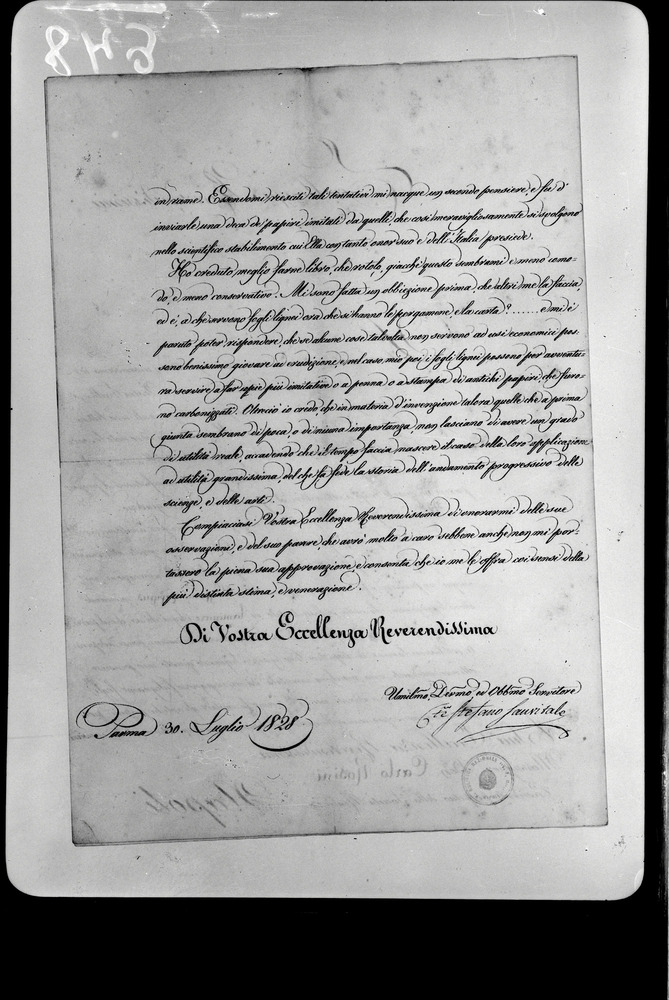 in rame. Essendomi riesciti tali tentativi mi nacque un secondo pensiere, e fu d'
inviarle una deca di papiri imitati da quelli, che così meravigliosamente si svolgono
nello scientifico stabilimento cui Ella con tanto onor suo e dell'Italia presiede.
Ho creduto meglio farne libro, che rotolo, giacchè questo sembrami e meno como-
do, e meno conservativo. Mi sono fatta un obbiezione prima, che altri me la faccia
ed è, a che servono fogli lignei ora che si hanno le pergamene, e la carta? ...... e mi è
paruto poter rispondere, che se alcune cose talvolta non servono ad usi economici pos
sono benissimo giovare ad erudizione, e nel caso mio poi i fogli lignei possono per avventu-
ra servire a far copie più imitative o a penna o a stampa di antichi papiri, che furo-
no carbonizzati. Oltreciò io credo, che in materia d'invenzione talora quelle che a prima
giunta sembrano di poca, o di niuna importanza, non lasciano di avere un grado
di utilità reale, accadendo che il tempo faccia nascere il caso della loro applicazione
ad utilità grandissima, del che fa fede la storia dell'andamento progressivo delle
scienze, e delle arti.
Compiacciasi Vostra Eccellenza Reverendissima di onorarmi delle sue
osservazioni, e del suo parere, che avrò molto a caro sebbene anche non mi por-
tassero la piena sua approvazione, e consenta che io me le offra coi sensi della
più distinta stima, e venerazione.
Di Vostra Eccellenza Reverendissima
Umilmo, Devmo ed Obbmo Servitore
Cte Stefano Sanvitale
Parma 30. Luglio 1828
Carlo Rosini
Napoli
548